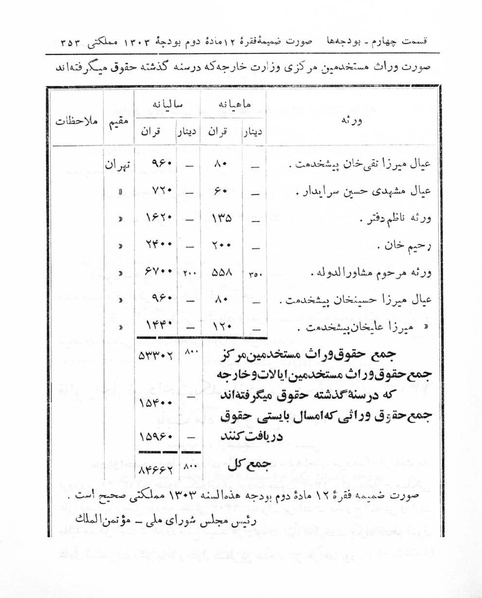 قسمت چهارم - بودجه‌ها صورت ضمیمهٔ فقرهٔ ۱۲ مادهٔ دوم بودجهٔ ۱۳۰۳ مملکتی ۳۵۳
صورت وراث مستخدمین مرکزی وزارت خارجه که در سنه گذشته حقوق میگرفته‌اند
ورثه ماهیانه سالیانه مقیم ملاحظات
دینار قران دینار قران
عیال میرزا تقی خان پیشخدمت . — ۸۰ — ۹۶۰ تهران
عیال مشهدی حسین سرایدار . — ۶۰ — ۷۲۰ «
ورثه ناظم دفتر . — ۱۳۵ — ۱۶۲۰ «
رحیم خان . — ۲۰۰ — ۲۴۰۰ «
ورثه مرحوم مشاورالدوله . ۳۵۰ ۵۵۸ ۲۰۰ ۶۷۰۰ «
عیال میرزا حسینخان پیشخدمت . — ۸۰ — ۹۶۰ «
« میرزا علیخان پیشخدمت . — ۱۲۰ — ۱۴۴۰ «
جمع حقوق وراث مستخدمین مرکز ۸۰۰ ۵۳۳۰۲
جمع حقوق وراث مستخدمین ایالات و خارجه
که در سنهٔ گذشته حقوق میگرفته‌اند — ۱۵۴۰۰
جمع حقوق وراثی که امسال بایستی حقوق
دریافت کنند — ۱۵۹۶۰
جمع کل ۸۰۰ ۸۴۶۶۲
صورت ضمیمه فقرهٔ ۱۲ مادهٔ دوم بودجه هذه‌السنه ۱۳۰۳ مملکتی صحیح است .
رئیس مجلس شورای ملی - مؤتمن‌الملک